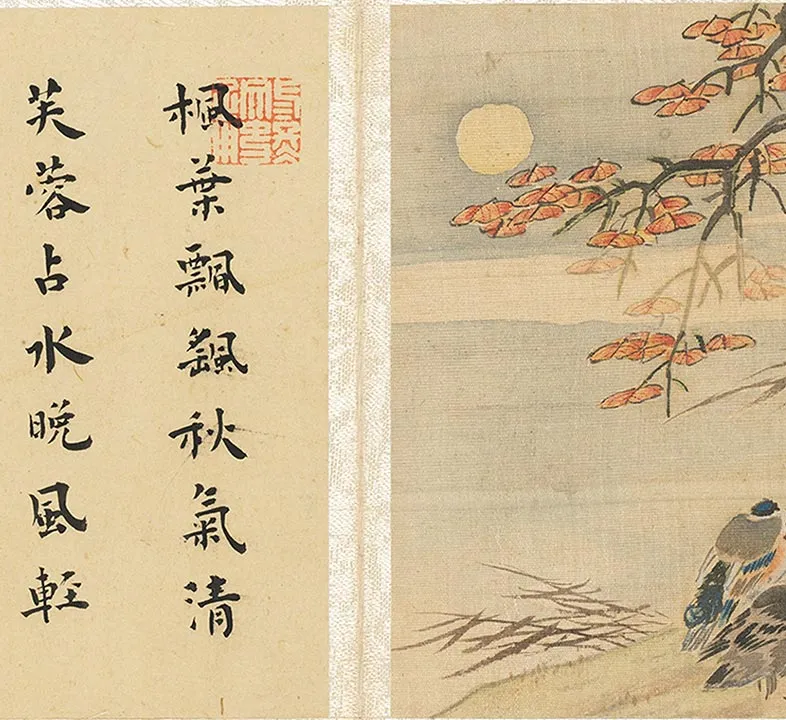 楓葉飄颻秋氣清
芙蓉占水晚風輕